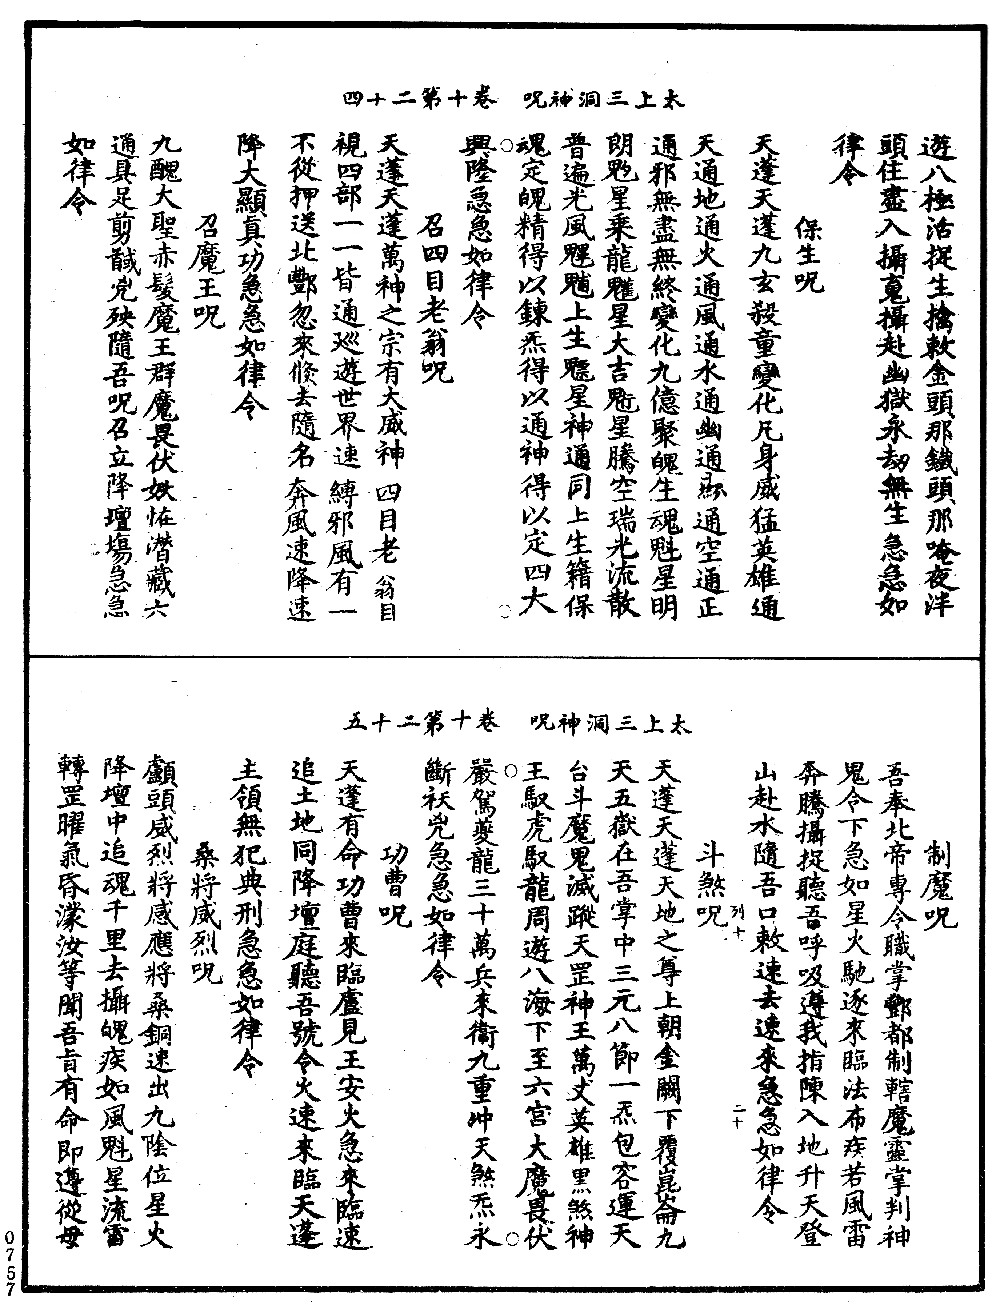 太上三洞神呪　卷十第二十四
遊八極活捉生擒敕金頭那鐵頭那唵夜泮
頭住盡入攝鬼攝赴幽獄永劫無生急急如
律令
保生呪
天蓬天蓬九玄殺童變化凡身威猛英雄通
天通地通火通風通水通幽通顯通空通正
通邪無盡無終變化九億聚魄生魂魁星明
朗魓星乘龍䰢星大吉魒星騰空瑞光流散
普遍光風上生星神通同上生籍保
魂定魄精得以鍊炁得以通神得以定四大
興隆急急如律令
召四目老翁呪
天蓬天蓬萬神之宗有大威神四目老翁目
視四部一一皆通巡遊世界速縛邪風有一
不從押送北酆忽來倐去隨名奔風速降速
降大顯真功急急如律令
召魔王呪
九醜大聖赤髮魔王群魔畏伏妖怪潛藏六
通具足剪馘兇殃隨吾呪召立降壇塲急急
如律令
太上三洞神呪　卷十第二十五
制魔呪
吾奉北帝專令職掌酆都制轄魔靈掌判神
鬼令下急如星火馳逐來臨法布疾若風雷
奔騰攝捉聽吾呼吸遵我指陳入地升天登
山赴水隨吾口敕速去速來急急如律令
斗煞呪
列十
二十
天蓬天蓬天地之尊上朝金闕下覆崑崙九
天五獄在吾掌中三元八節一炁包容運天
台斗魔鬼滅蹤天罡神王萬丈英雄黑煞神
王馭虎馭龍周遊八海下至六宮大魔畏伏
嚴駕夔龍三十萬兵來衞九重冲天煞炁永
斷祅兇急急如律令
功曹呪
天蓬有命功曹來臨廬見王安火急來臨速
追土地同降壇庭聽吾號令火速來臨天蓬
主領無犯典刑急急如律令
桑將威烈呪
顱頭威烈將感應將桑銅速出九陰位星火
降壇中追魂千里去攝魄疾如風魁星流雷
轉罡曜氣昏濛汝等聞吾旨有命即遵從毋
0757